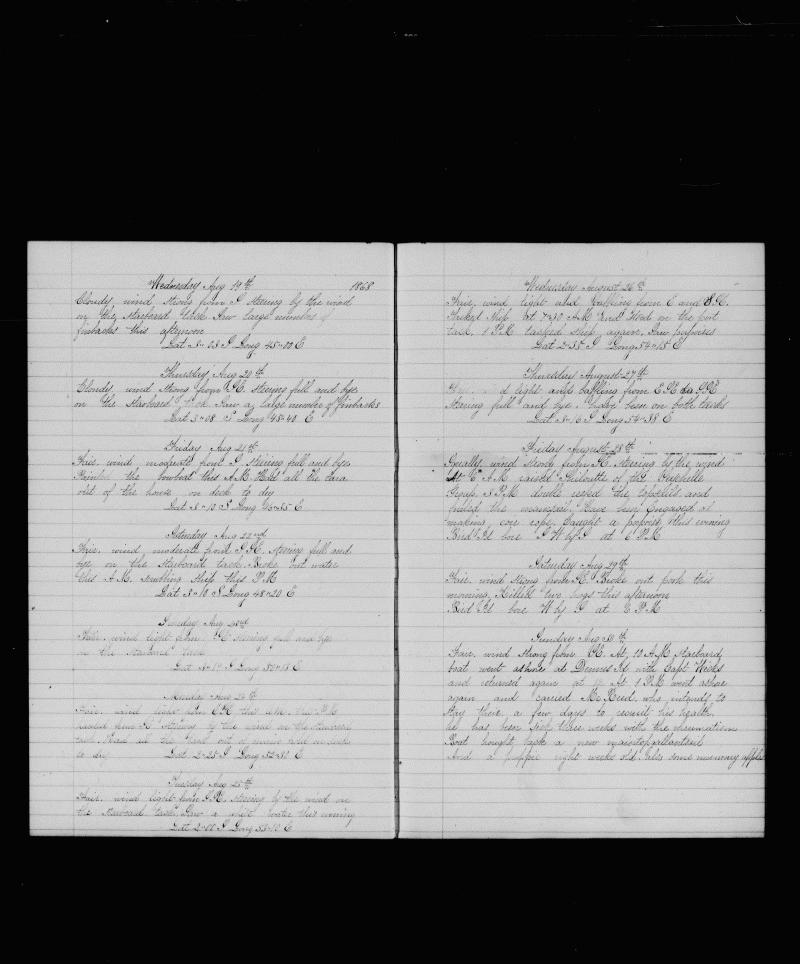 Wednesday Aug 19th 1868
Cloudy, wind strong from S steering by the wind
on the starboard tack Saw large number of
finbacks this afternoon
Lat 3-03 S Long 45-00 E
Thursday Aug 20th
Cloudy, wind strong from S.E. steering full and bye
on the starboard tack. Saw a large number of finbacks
Lat 3-08 S Long 45-40 E
Friday Aug 21st
Fair, wind moderate from S steering full and bye
Painted the bowboat this A.M. Had all the
out of the house on deck to dry
Lat 3-10 S Long 46-35 E
Saturday Aug 22nd
Fair, wind moderate from S.E. steering full and
bye on the starboard tack. Broke out water
this A.M. scrubbing ship this P.M
Lat 3-10 S Long 48-20 E
Sunday Aug 23rd
Fair, wind light from steering full and bye
on the starboard tack
Lat S Long E
Monday Aug 24th
Fair, wind light from this A.M. this P.M
steering by the wind on the starboard
tack. Had all the out of house and on deck
to dry Lat 2-25 S Long 52-30 E
Tuesday Aug 25th
Fair, wind light from S.E. steering by the wind on
the starboard tack. Saw a white water this evening
Lat 2-00 S Long 53-10 E
Wednesday August 26th
Fair, wind light and baffling from E and S.E.
Tacked ship at 7-30 A.M and stood on the port
tack, 1 P.M tacked ship again. Saw porpoises
Lat 2-35 S Long 54-15 E
Thursday August 27th
light and baffling from E.S.E to S.S.E
steering full and bye. have been on both tacks
Lat 3-16 S Long 54-38 E
Friday August 28th
Squally, wind strong from S.E. steering by the wind
At 6 A.M raised of the Seychelle
Group, 3 P.M double reefed the topsails and
furled the mainsail. Have been engaged at
making core rope. Caught a porpoise this evening
Bird Isl bore S.W by S at 6 P.M
Saturday Aug 29th
Fair, wind strong from S.E. Broke out pork this
morning. Killed two hogs this afternoon
Bird Isl bore W by S at 6 P.M
Sunday Aug 30th
Fair, wind strong from S.E. At 10 A.M Starboard
boat went ashore at Dennis Isl with Capt Weeks
and returned again at 12 At 1 P.M went ashore
again and carried Mr Reed, who intends to
stay there a few days to recruit his health
he has been sick three weeks with the rheumatism
Boat brought back a new maintopgallantsail
And a puppie eight weeks old. Also some apples